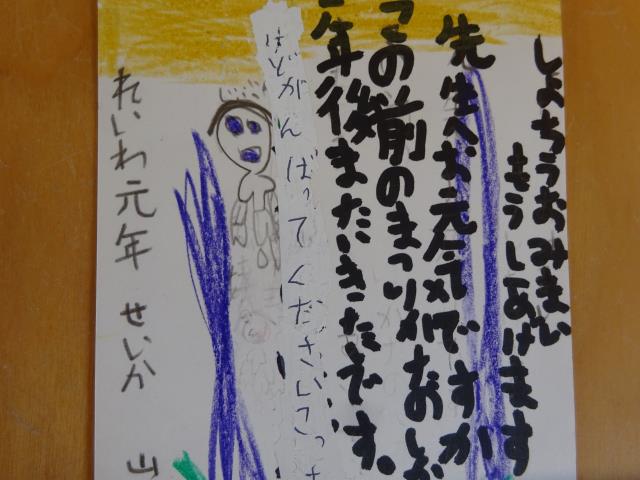 しよちうおみまい
もうしあげます
先生へお元気ですか
この前のまつりがなおしか
年後またいきたいです。
ほどがんばってくださいこっち
れいわ元年 せいか 山